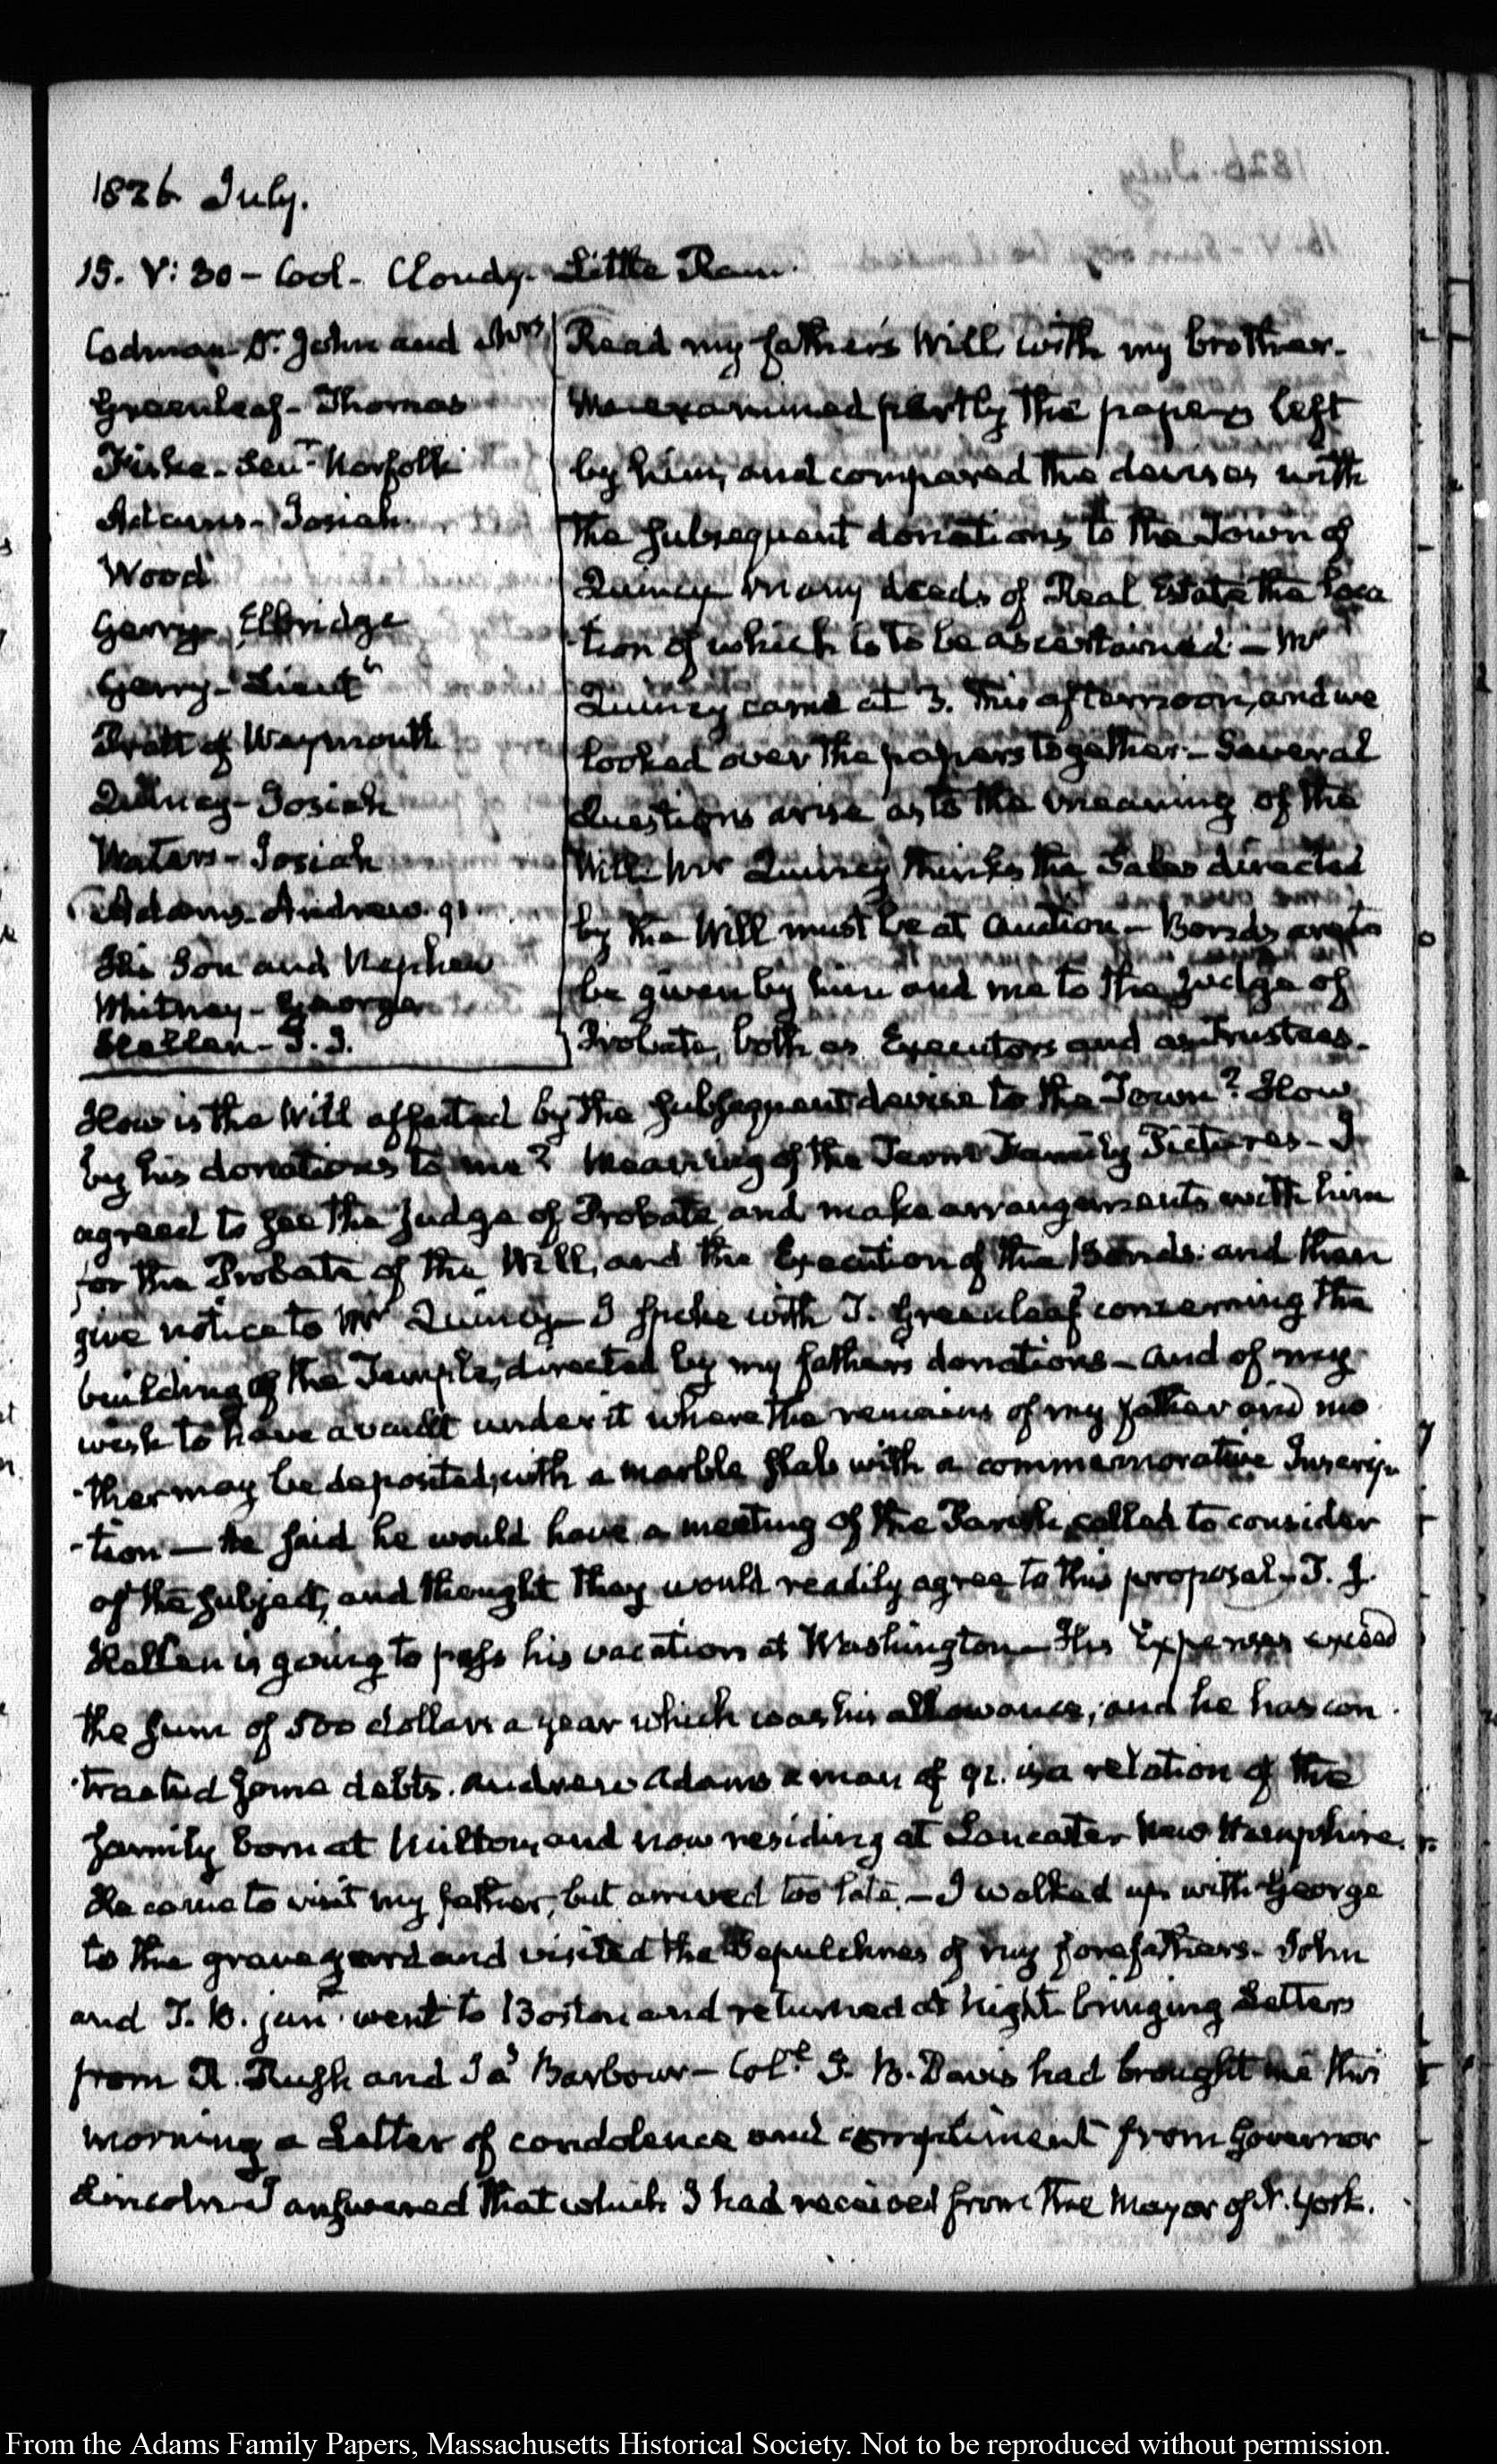 1826 July.
15. V: 30 – Cool. Cloudy. Little Rain.
Codman – Dr. John and Mrs
Greenleaf – Thomas
Fiske – Senr. Norfolk
Adams – Josiah.
Wood
Gerry, Elbridge
Gerry – Lieutt
Pratt of Weymouth
Quincy – Josiah
Waters – Josiah
Adams – Andrew. 91
His Son and Nephew
Whitney – George
Hellen – T. J.
Read my father's Will, with my brother.
We examined partly the papers left
by him, and compared the devises with
the subsequent donations to the Town of
Quincy many deeds of Real Estate the loca
-tion of which is to be ascertained. – Mr
Quincy came at 3. this afternoon, and we
looked over the papers together – Several
Questions arise as to the meaning of the
Will – Mr Quincy thinks the Sales directed
by the Will must be at Auction – Bonds are to
be given by him and me to the Judge of
Probate, both as Executors and as Trustees.
How is the Will affected by the subsequent devise to the Town? How
by his donations to me? Meaning of the Term Family Pictures – I
agreed to see the Judge of Probate, and make arrangements with him
for the Probate of the Will, and the Execution of the Bonds: and then
give notice to Mr Quincy – I spoke with T. Greenleaf concerning the
building of the Temple, directed by my father's donations – and of my
wish to have a vault under it where the remains of my father and mo
-ther may be deposited, with a marble slab with a commemorative Inscrip
-tion – He said he would have a meeting of the Parish called to consider
of the subject, and thought they would readily agree to this proposal – T. J.
Hellen is going to pass his vacation at Washington – His Expenses exceed
the sum of 500 dollars a year which was his allowance, and he has con
-tracted some debts. Andrew Adams a man of 91. is a relation of the
family born at Milton, and now residing at Lancaster New Hampshire.
He came to visit my father, but arrived too late. – I walked up with George
to the graveyard and visited the Sepulchres of my forefathers. John
and T. B. junr. went to Boston and returned at Night bringing Letters
from R. Rush and Jas Barbour – Coll. I. B. Davis had brought me this
morning a Letter of condolence and compliment from Governor
Lincoln – I answered that which I had received from the Mayor of N. York.
From the Adams Family Papers, Massachusetts Historical Society. Not to be reproduced without permission.